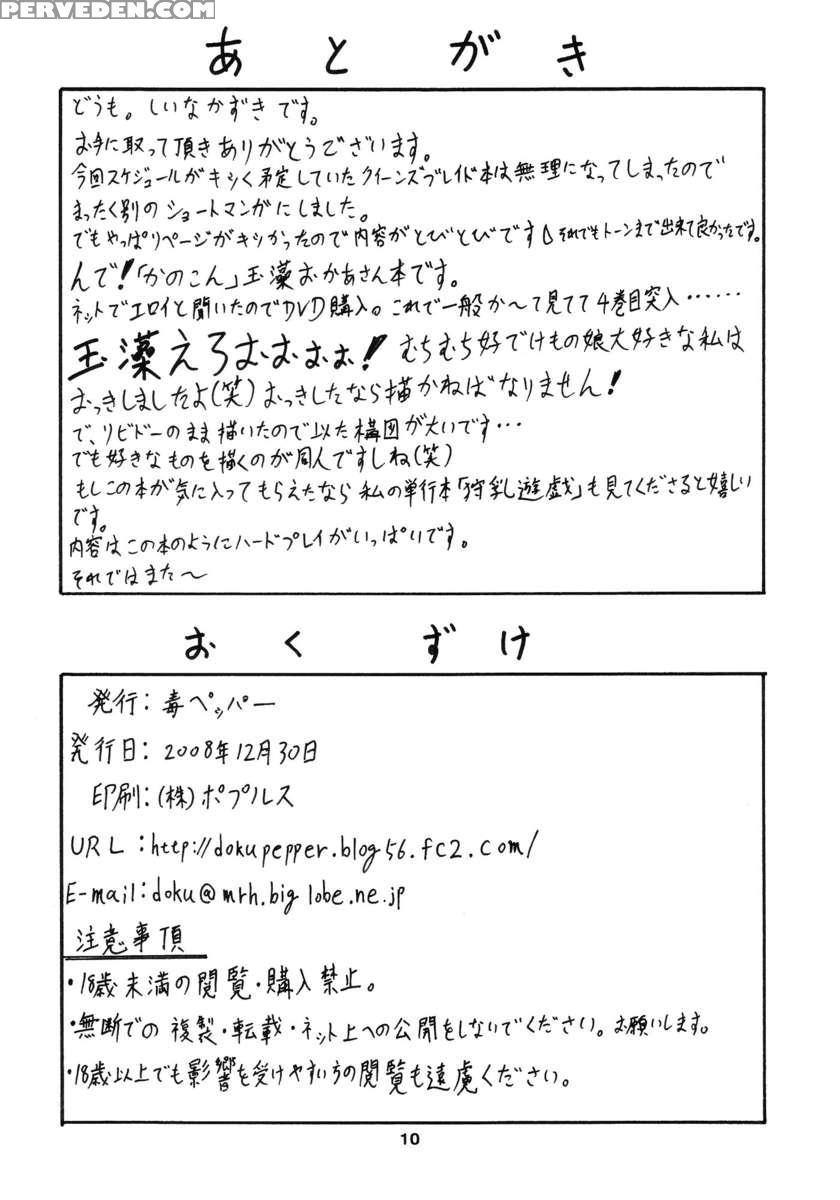 PERVEDEN.COM
あとがき
どうも。しいなかずきです。
お手に取って頂きありがとうございます。
今回スケジュールがキシく予定していたクイーンズブレイド本は無理になってしまったので
まったく別のショートマンガにしました。
でもやっぱりページがキシかったので内容がとびとびです それでもトーンまで出来て良かったです。
んで!「かのこん」玉藻おかあさん本です。
ネットでエロイと聞いたのでDVD購入。これで一般か〜て見てて4巻目突入・・・・・・
玉藻えろおぉぉぉ! むちむち好でけもの娘大好きな私は
おっきしましたよ(笑)おっきしたなら描かねばなりません!
で、リビドーのまま描いたので似た構図が大いです・・・
でも好きなものを描くのが同人ですしね(笑)
もしこの本が気に入ってもらえたなら私の単行本「狩乳遊戯」も見てくださると嬉しい
です。
内容はこの本のようにハードプレイがいっぱいです。
それではまた〜
おくずけ
発行:毒ペッパー
発行日:2008年12月30日
印刷:(株)ポプルス
URL:http://dokupepper.blog56.fc2.com/
E-mail:doku@mrh.biglobe.ne.jp
注意事項
・18歳未満の閲覧・購入禁止。
・無断での複製・転載・ネット上への公開をしないでください。お願いします。
・18歳以上でも影響を受けやすい方の閲覧も遠慮ください。
10